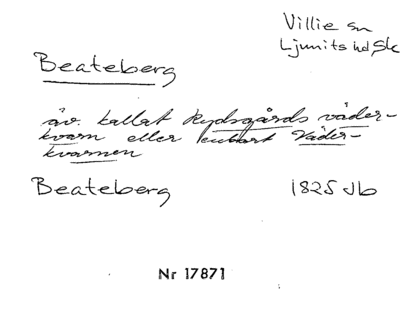 Villie sn
Ljunits hd, Sk
Beateberg
äv. kallat Rydsgårds väder-
kvarn eller enbart Väder-
kvarnen
Beateberg 1825 Jb
Nr 17871